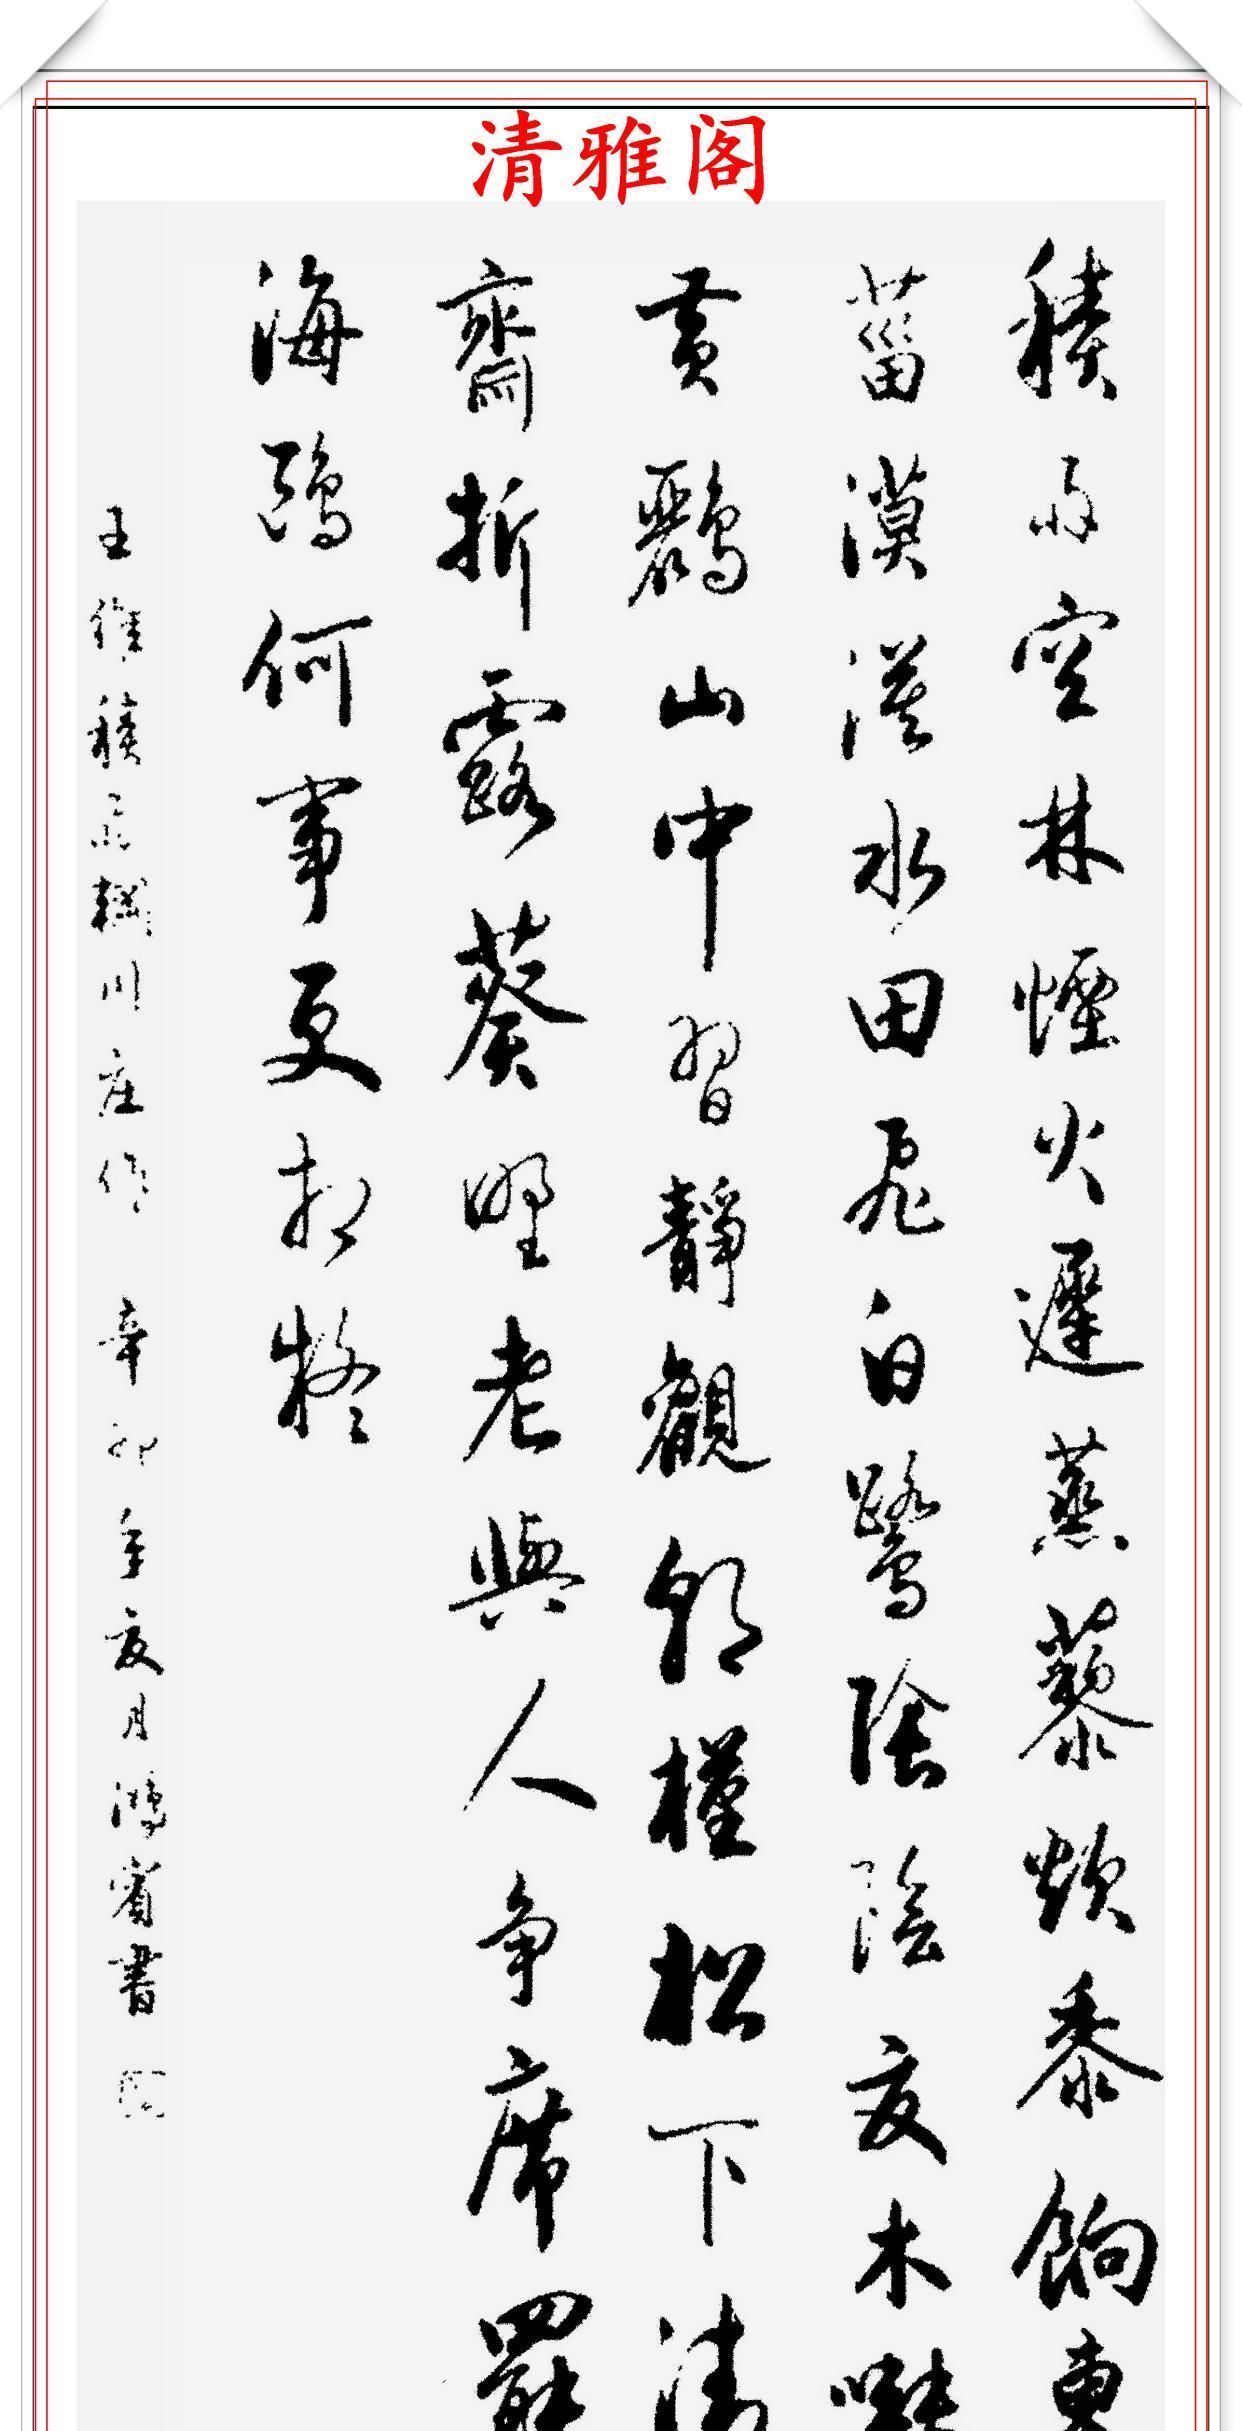 清雅阁
積雨空林煙火遲蒸藜炊黍餉東
菑漠漠水田飛白鷺陰陰夏木囀
黄鸝山中習靜觀朝槿松下清
齋折露葵野老與人爭席罷
海鷗何事更相疑
王維積雨輞川庄作 辛卯年夏月鴻賓書